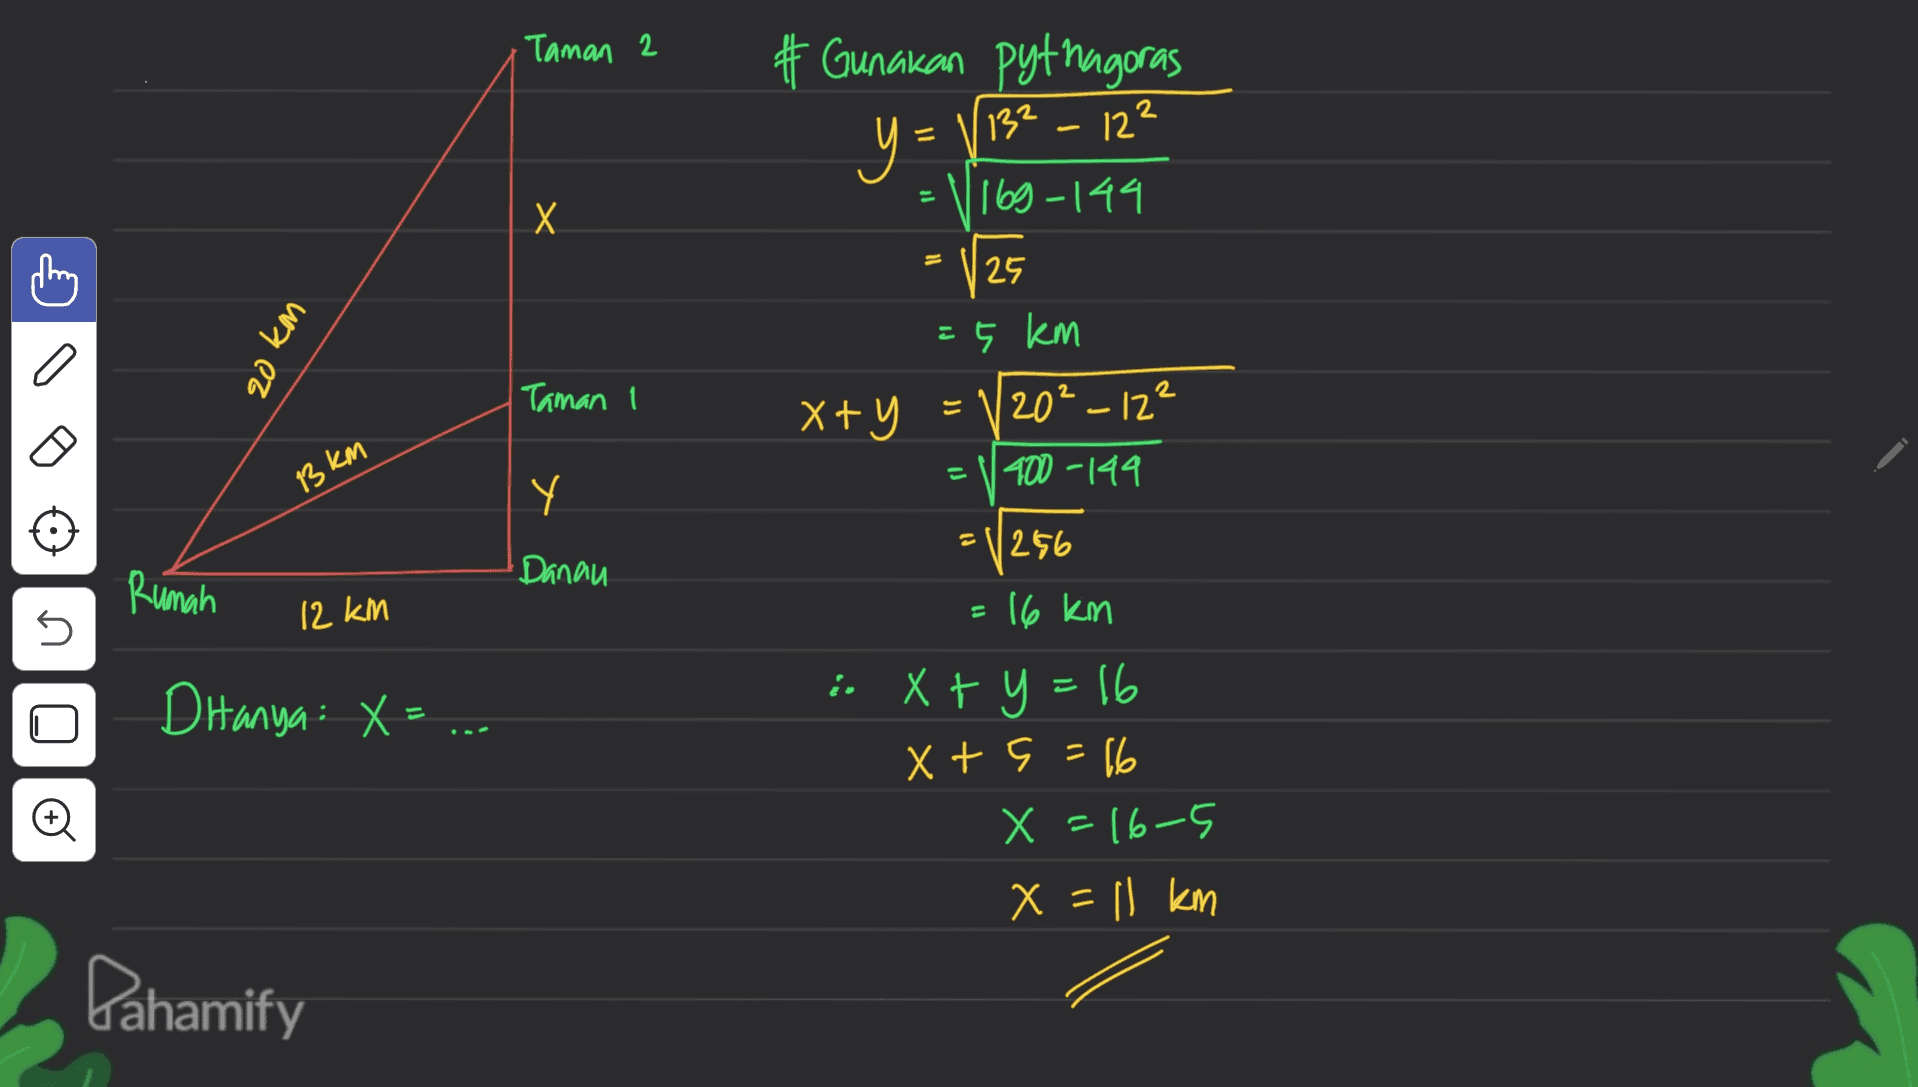 Taman 2
X
20 km
Taman 1
13 km
Y
Danau
Rumah
12 km
Ditanya: X = ...
# Gunakan pythagoras
y = √13² - 12²
= √169 - 144
= √25
= 5 km
x + y = √20² - 12²
= √400 - 144
= √256
= 16 km
∴ x + y = 16
x + 5 = 16
x = 16 - 5
x = 11 km
Pahamify